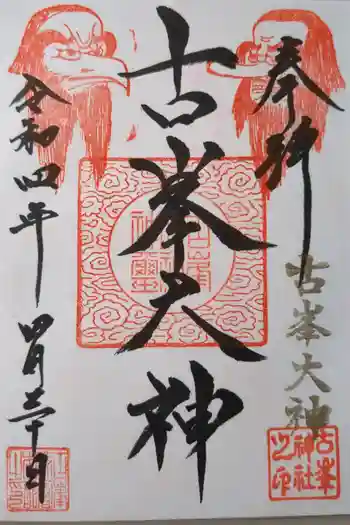 奉拝
古峯大神
古峯
神社
之印
古峯大神
令和四年
四月三十日